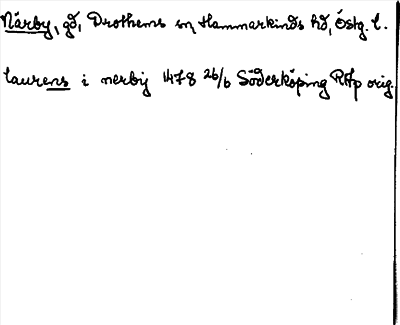 Närby, gd, Drothems sn Hammarkinds hd, Östg. l.
laurens i nerbij 1478 26/6 Söderköping RAp orig.